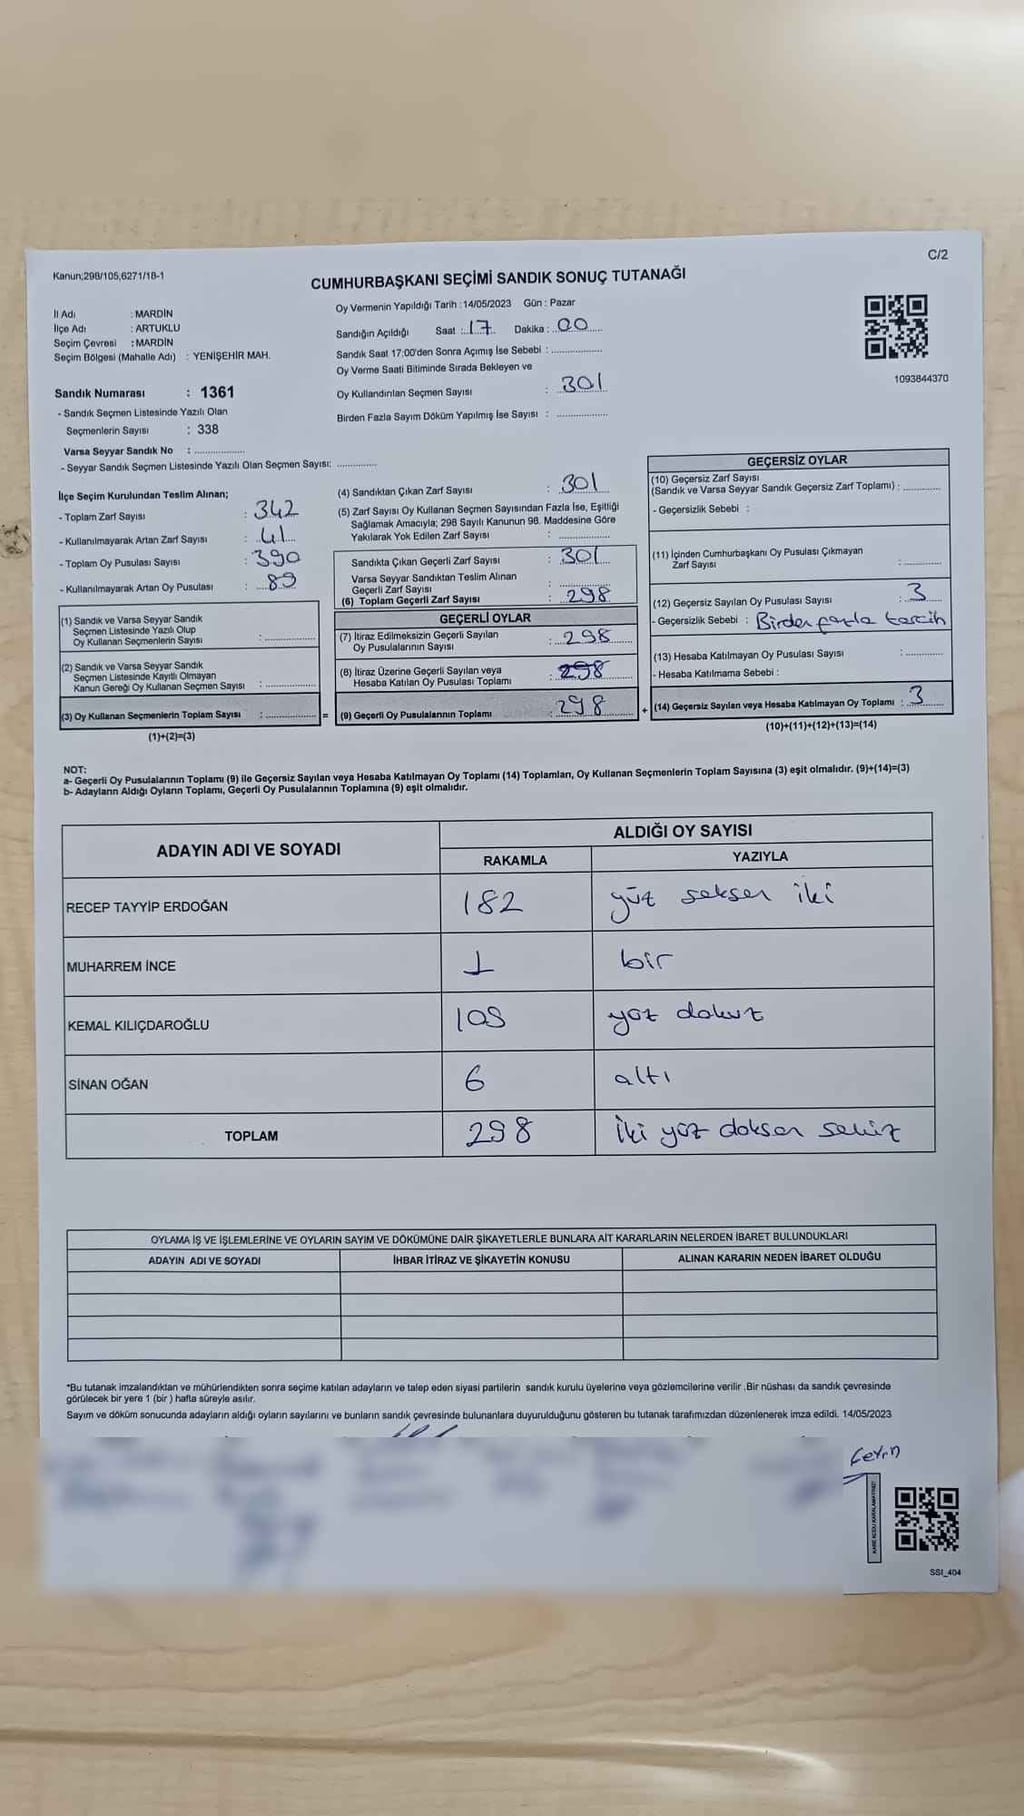 Kanun;298/105,6271/18-1
C/2
CUMHURBAŞKANI SEÇİMİ SANDIK SONUÇ TUTANAĞI
İl Adı : MARDİN
İlçe Adı : ARTUKLU
Seçim Çevresi : MARDİN
Seçim Bölgesi (Mahalle Adı) : YENİŞEHİR MAH.
Sandık Numarası : 1361
- Sandık Seçmen Listesinde Yazılı Olan
Seçmenlerin Sayısı : 338
Varsa Seyyar Sandık No : ..................
- Seyyar Sandık Seçmen Listesinde Yazılı Olan Seçmen Sayısı: ..............
Oy Vermenin Yapıldığı Tarih : 14/05/2023 Gün : Pazar
Sandığın Açıldığı Saat : 17 Dakika : 00
Sandık Saat 17:00'den Sonra Açımış İse Sebebi : ..................
Oy Verme Saati Bitiminde Sırada Bekleyen ve
Oy Kullandırılan Seçmen Sayısı : 301
Birden Fazla Sayım Döküm Yapılmış İse Sayısı : ..................
1093844370
İlçe Seçim Kurulundan Teslim Alınan;
- Toplam Zarf Sayısı : 342
- Kullanılmayarak Artan Zarf Sayısı : 41
- Toplam Oy Pusulası Sayısı : 390
- Kullanılmayarak Artan Oy Pusulası : 89
(1) Sandık ve Varsa Seyyar Sandık
Seçmen Listesinde Yazılı Olup
Oy Kullanan Seçmenlerin Sayısı : ..................
(2) Sandık ve Varsa Seyyar Sandık
Seçmen Listesinde Kayıtlı Olmayan
Kanun Gereği Oy Kullanan Seçmen Sayısı : ..................
(3) Oy Kullanan Seçmenlerin Toplam Sayısı : .................. =
(1)+(2)=(3)
(4) Sandıktan Çıkan Zarf Sayısı : 301
(5) Zarf Sayısı Oy Kullanan Seçmen Sayısından Fazla İse, Eşitliği
Sağlamak Amacıyla; 298 Sayılı Kanunun 98. Maddesine Göre
Yakılarak Yok Edilen Zarf Sayısı : ..................
Sandıkta Çıkan Geçerli Zarf Sayısı : 301
Varsa Seyyar Sandıktan Teslim Alınan
Geçerli Zarf Sayısı : ..................
(6) Toplam Geçerli Zarf Sayısı : 298
GEÇERLİ OYLAR
(7) İtiraz Edilmeksizin Geçerli Sayılan
Oy Pusulalarının Sayısı : 298
(8) İtiraz Üzerine Geçerli Sayılan veya
Hesaba Katılan Oy Pusulası Toplamı : 298
(9) Geçerli Oy Pusulalarının Toplamı : 298 +
GEÇERSİZ OYLAR
(10) Geçersiz Zarf Sayısı
(Sandık ve Varsa Seyyar Sandık Geçersiz Zarf Toplamı) : ..............
- Geçersizlik Sebebi :
(11) İçinden Cumhurbaşkanı Oy Pusulası Çıkmayan
Zarf Sayısı : ..............
(12) Geçersiz Sayılan Oy Pusulası Sayısı : 3
- Geçersizlik Sebebi : Birden fazla tercih
(13) Hesaba Katılmayan Oy Pusulası Sayısı : ..............
- Hesaba Katılmama Sebebi :
(14) Geçersiz Sayılan veya Hesaba Katılmayan Oy Toplamı : 3
(10)+(11)+(12)+(13)=(14)
NOT:
a- Geçerli Oy Pusulalarının Toplamı (9) ile Geçersiz Sayılan veya Hesaba Katılmayan Oy Toplamı (14) Toplamları, Oy Kullanan Seçmenlerin Toplam Sayısına (3) eşit olmalıdır. (9)+(14)=(3)
b- Adayların Aldığı Oyların Toplamı, Geçerli Oy Pusulalarının Toplamına (9) eşit olmalıdır.
ADAYIN ADI VE SOYADI ALDIĞI OY SAYISI
RAKAMLA YAZIYLA
RECEP TAYYİP ERDOĞAN 182 yüz seksen iki
MUHARREM İNCE 1 bir
KEMAL KILIÇDAROĞLU 109 yüz dokuz
SİNAN OĞAN 6 altı
TOPLAM 298 iki yüz doksan sekiz
OYLAMA İŞ VE İŞLEMLERİNE VE OYLARIN SAYIM VE DÖKÜMÜNE DAİR ŞİKAYETLERLE BUNLARA AİT KARARLARIN NELERDEN İBARET BULUNDUKLARI
ADAYIN ADI VE SOYADI İHBAR İTİRAZ VE ŞİKAYETİN KONUSU ALINAN KARARIN NEDEN İBARET OLDUĞU
*Bu tutanak imzalandıktan ve mühürlendikten sonra seçime katılan adayların ve talep eden siyasi partilerin sandık kurulu üyelerine veya gözlemcilerine verilir .Bir nüshası da sandık çevresinde
görülecek bir yere 1 (bir ) hafta süreyle asılır.
Sayım ve döküm sonucunda adayların aldığı oyların sayılarını ve bunların sandık çevresinde bulunanlara duyurulduğunu gösteren bu tutanak tarafımızdan düzenlenerek imza edildi. 14/05/2023
SSI_404